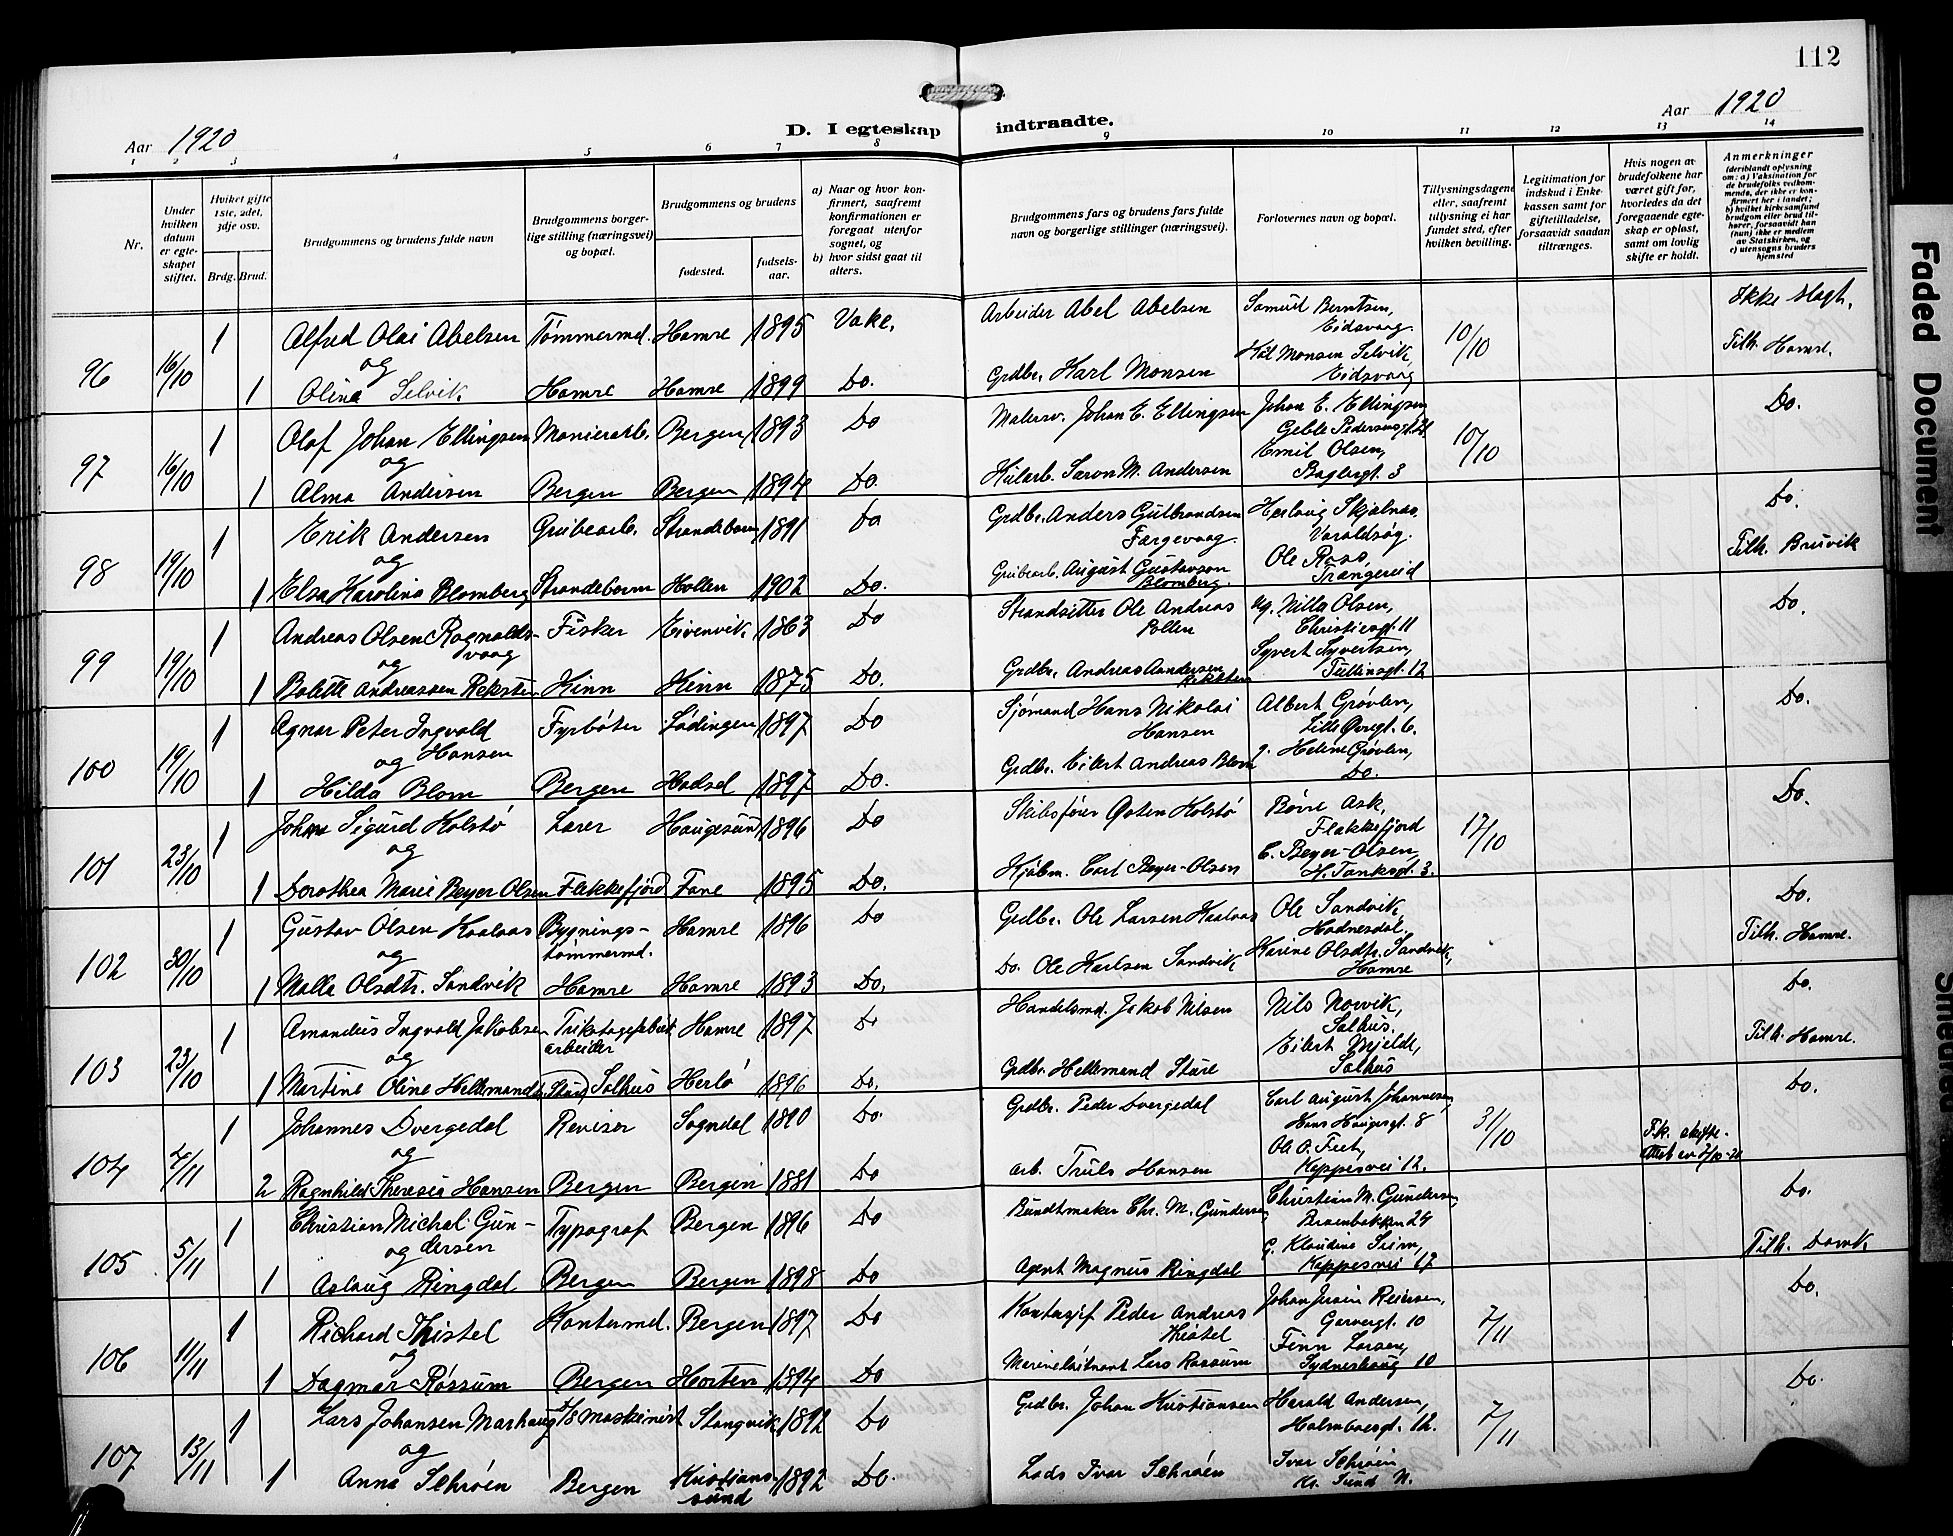 112
Aar 1920
D. I egteskap indtraadte.
Aar 1920
1 2 3 4 5 6 7 8 9 10 11 12 13 14
Nr.
Under hvilken datum er egteskapet stiftet.
Hvilket gifte 1ste, 2det, 3dje osv.
Brdg. Brud.
Brudgommens og brudens fulde navn
Brudgommens borgerlige stilling (næringsvei) og bopæl.
Brudgommens og brudens
fødested.
fødselsaar.
a) Naar og hvor konfirmert, saafremt konfirmationen er foregaat utenfor sognet, og
b) hvor sidst gaat til alters.
Brudgommens fars og brudens fars fulde navn og borgerlige stillinger (næringsvei).
Forlovernes navn og bopæl.
Tillysningsdagene eller, saafremt tillysning ei har fundet sted, efter hvilken bevilling.
Legitimation for indskud i Enkekassen samt for giftetilladelse, forsaavidt saadan tiltrænges.
Hvis nogen av brudefolkene har været gift før, hvorledes da det foregaaende egteskap er opløst, samt om lovlig skifte er holdt.
Anmerkninger (deriblandt oplysning om: a) Vaksination for de brudefolks vedkommende, der ikke er konfirmert her i landet; b) hvilket kirkesamfund brudgom eller brud tilhører, forsaavidt han (hun) ikke er medlem av Statskirken, og c) utensogns bruders hjemsted
96 16/10 1 Alfred Olai Abelsen Tømmermd. Hamre 1895 Vake. Arbeider Abel Abelsen Samuel Berntsen, Eidsvaag. 10/10 Ikke slagt.
og
1 Olina Selvik Hamre Hamre 1899 Do. Grdbr. Karl Monsen Karl Monsen Selvik, Eidsvaag Tilh. Hamre.
97 16/10 1 Olaf Johan Ellingsen Bergen 1893 Do Johan E. Ellingsen Johan E. Ellingsen Geble Pedersensgt. 10/10 Do.
og
1 Alma Andersen Bergen Bergen 1894 Do. M. Andersen Emil Olsen, Baglergt. 3
98 19/10 1 Erik Andersen Grubearb. Strandebarm 1891 Do Grdbr. Anders Gulbrandsen Færgevaag. Varaldsøy. Do.
og
1 Elsa Karolina Blomberg Strandebarm 1902 Do. Grubearb. August Gustavson Blomberg. Ole Trængereid Tilh. Bruvik
99 19/10 1 Andreas Olsen Ragnaldsvaag Fisker Eivenvik 1863 Do Strandsitter Ole Andreas Pollen Nilla Olsen, Christiesgt. 11 Do.
og
1 Bolette Andreassen Reksten Kinn Kinn 1875 Do. Grdbr. Andreas Andersen Reksten Syvert Syvertsen, Tullinsgt. 12
100 19/10 1 Agnar Peter Ingvald Hansen Fyrbøter Lødingen 1897 Do Sjømand Hans Nikolai Hansen Albert Grøvlen, Lille Øvregt. 6. Do.
og
1 Hilda Blom Bergen Hadsel 1897 Do. Grdbr. Eilert Andreas Blom Heline Grøvlen, Do.
101 23/10 1 Sigurd Kolstø Lærer Haugesund 1896 Do Skibsfører Østen Kolstø Børre Ask, Flekkefjord 17/10 Do.
og
1 Dorothea Marie Beyer Olsen Flekkefjord Fane 1895 Do. Carl Beyer-Olsen C. Beyer-Olsen, H. Tanksgt. 3.
102 30/10 1 Gustav Olsen Kaalaas Bygningstømmermd. Hamre 1896 Do Grdbr. Ole Larsen Kaalaas Ole Sandvik, Hodnesdal. Do.
og
1 Malla Olsdtr. Sandvik Hamre Hamre 1893 Do. Do. Ole Karlsen Sandvik Karine Olsdtr. Sandvik, Hamre Tilh. Hamre.
103 23/10 1 Amandus Ingvald Jakobsen Trikotagefabrikarbeider Hamre 1897 Do Handelsmd. Jakob Nilsen Nils Norvik, Salhus. Do.
og
1 Martine Oline Hellemandsd. (Sture) Salhus Herlø 1896 Do. Grdbr. Hellemand Sture Eilert Mjelde, Salhus Tilh. Hamre.
104 4/11 1 Johannes Dvergedal Revisor Sogndal 1890 Do. Grdbr. Peder Dvergedal Carl August Johannesen, Hans Haugesgt. 8 31/10 Do.
og
2 Ragnhild Theresia Hansen Bergen Bergen 1881 Do Arb. Truls Hansen Ole O. Kippesvei 12. Fk. skifte-
105 5/11 1 Christian Michal Gundersen Typograf Bergen 1896 Do Bundtmaker Chr. M. Gundersen Christian M. Gundersen, Do.
og
1 Aslaug Ringdal Bergen Bergen 1898 Do Agent Magnus Ringdal Klaudine Kippesvei 17 Tilh. Domk.
106 11/11 1 Richard Thistel Kontormd. Bergen 1897 Do Peder Andreas Thistel Reiersen, Garvergt. 10 7/11 Do.
og
1 Dagmar Røssum Bergen Horten 1894 Do Marineløitnant Lars Røssum Finn Larsen, Sydneshaug 10
107 13/11 1 Lars Johansen Marhaug Maskinist Stangvik 1892 Do Grdbr. Johan Kristiansen Harald Andersen, Holmboesgt. 12. 7/11 Do.
og
1 Anna Schrøen Bergen Kristianssund 1892 Do. Lods Ivar Schrøen Ivar Schrøen Kr. Sund N.
Faded Document